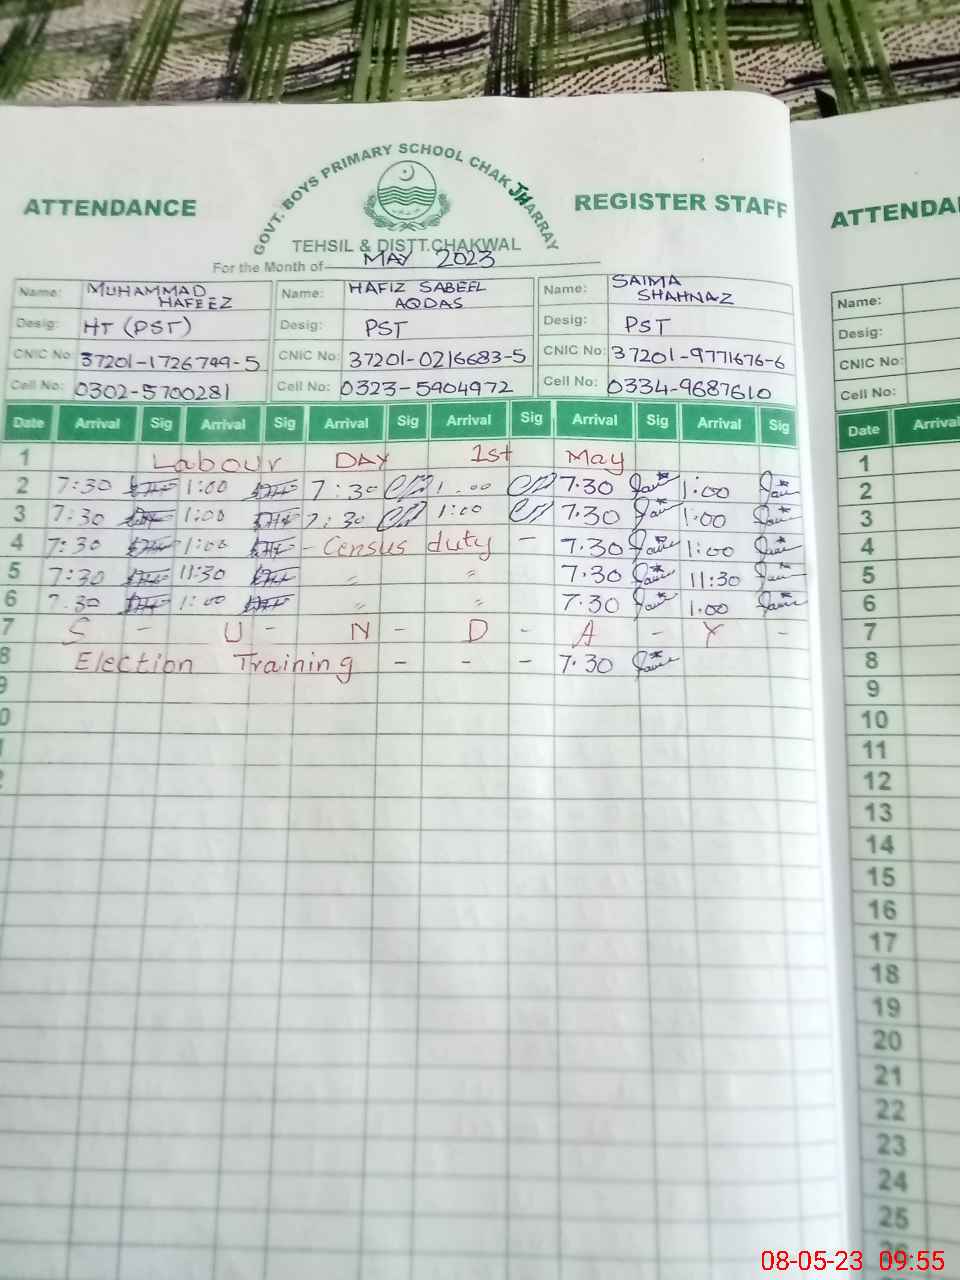 GOVT. BOYS PRIMARY SCHOOL CHAK JHARRAY
ATTENDANCE REGISTER STAFF
TEHSIL & DISTT.CHAKWAL
For the Month of MAY 2023
Name: MUHAMMAD HAFEEZ Name: HAFIZ SABEEL AQDAS Name: SAIMA SHAHNAZ
Desig: HT (PST) Desig: PST Desig: PST
CNIC No: 37201-1726749-5 CNIC No: 37201-0216683-5 CNIC No: 37201-9771676-6
Cell No: 0302-5700281 Cell No: 0323-5904972 Cell No: 0334-9687610
Date Arrival Sig Arrival Sig Arrival Sig Arrival Sig Arrival Sig Arrival Sig
1 Labour DAY 1st May
2 7:30 1:00 7:30 1:00 7.30 1:00
3 7:30 1:00 7:30 1:00 7.30 1:00
4 7:30 1:00 - Census duty - 7.30 1:00
5 7:30 11:30 " " 7.30 11:30
6 7.30 1:00 " " 7.30 1.00
7 S - U - N - D - A - Y -
8 Election Training - - - 7.30
9
0
1
2
ATTENDA
Name:
Desig:
CNIC No:
Cell No:
Date Arrival
1
2
3
4
5
6
7
8
9
10
11
12
13
14
15
16
17
18
19
20
21
22
23
24
25
26
08-05-23 09:55